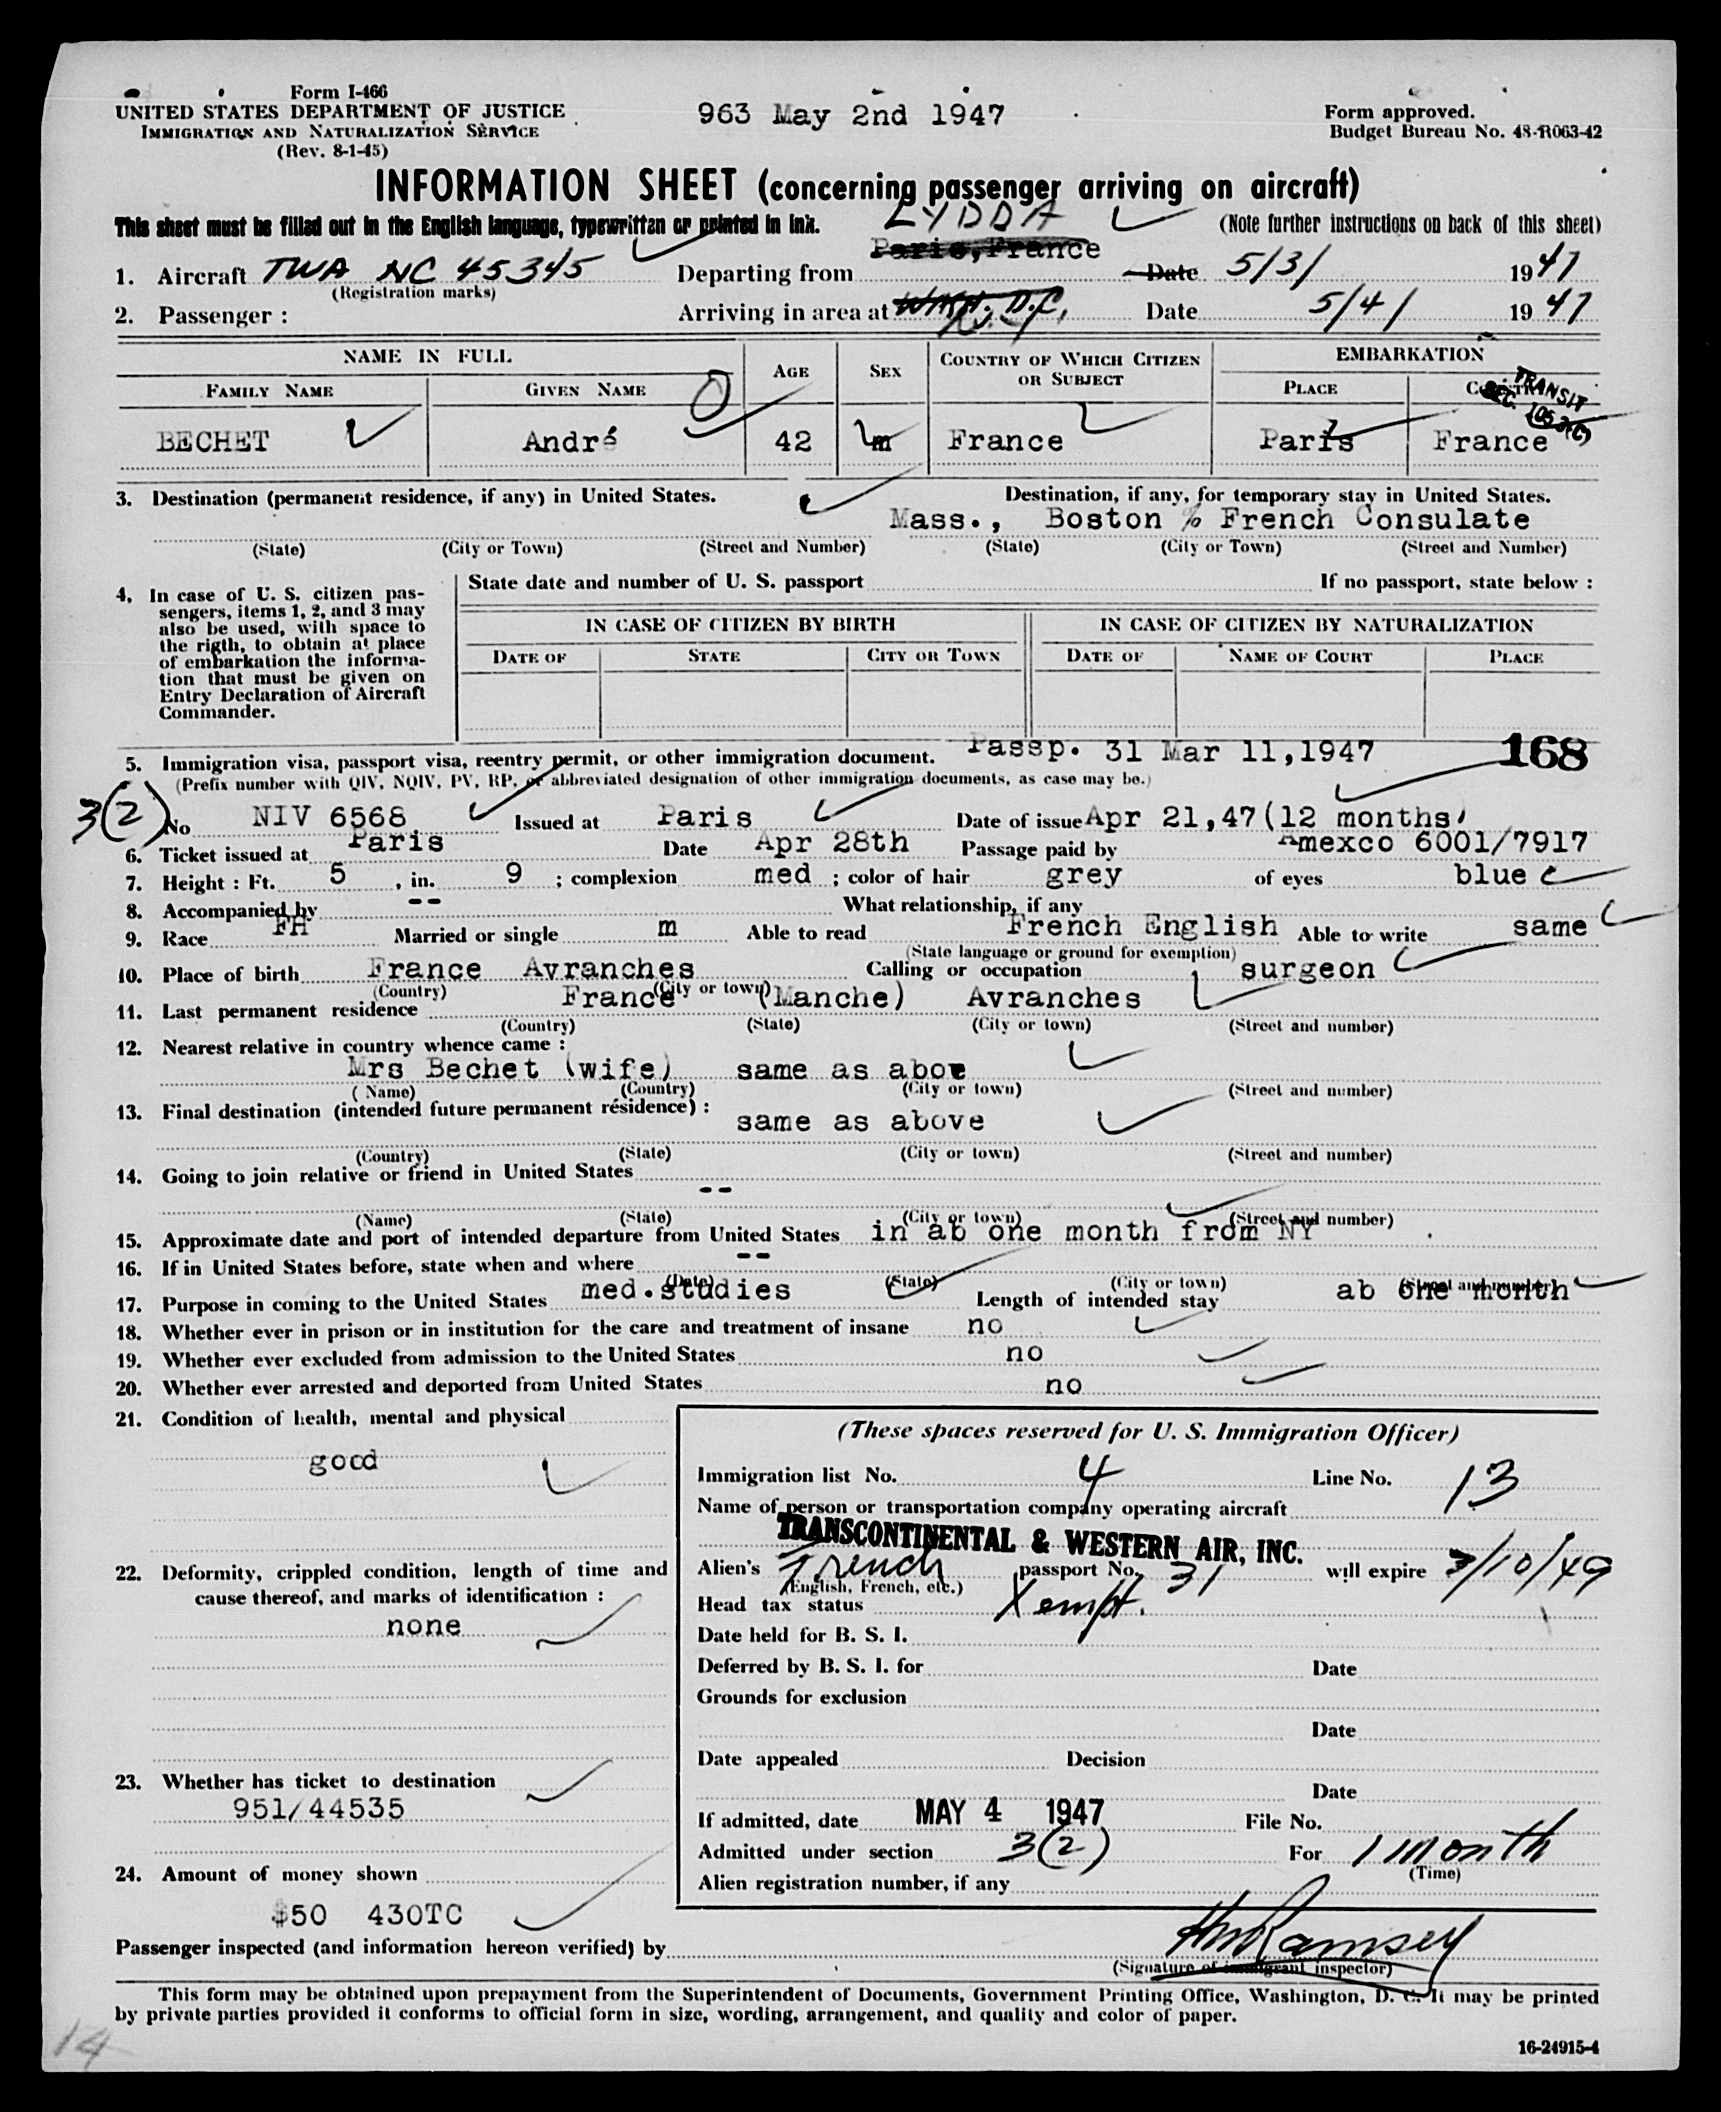 Form I-466
UNITED STATES DEPARTMENT OF JUSTICE
IMMIGRATION AND NATURALIZATION SERVICE
(Rev. 8-1-45)
963 May 2nd 1947
Form approved.
Budget Bureau No. 43-R063-42
INFORMATION SHEET (concerning passenger arriving on aircraft)
This sheet must be filled out in the English language, typewritten or printed in ink.
LYDDA
(Note further instructions on back of this sheet)
1. Aircraft TWA NC 45345 Departing from Paris, France Date 5/3/ 1947
(Registration marks)
2. Passenger : Arriving in area at WASH. D.C. N.Y. Date 5/4/ 1947
NAME IN FULL AGE SEX COUNTRY OF WHICH CITIZEN OR SUBJECT EMBARKATION
FAMILY NAME GIVEN NAME PLACE
TRANSIT
0
BECHET André 42 m France Paris France
3. Destination (permanent residence, if any) in United States. Destination, if any, for temporary stay in United States.
Mass., Boston % French Consulate
(State) (City or Town) (Street and Number) (State) (City or Town) (Street and Number)
4. In case of U. S. citizen pas-
sengers, items 1, 2, and 3 may
also be used, with space to
the rigth, to obtain at place
of embarkation the informa-
tion that must be given on
Entry Declaration of Aircraft
Commander.
State date and number of U. S. passport If no passport, state below :
IN CASE OF CITIZEN BY BIRTH IN CASE OF CITIZEN BY NATURALIZATION
DATE OF STATE CITY OR TOWN DATE OF NAME OF COURT PLACE
5. Immigration visa, passport visa, reentry permit, or other immigration document. Passp. 31 Mar 11,1947 168
(Prefix number with QIV, NQIV, PV, RP, or abbreviated designation of other immigration documents, as case may be.)
3(2) No NIV 6568 Issued at Paris Date of issue Apr 21,47(12 months)
6. Ticket issued at Paris Date Apr 28th Passage paid by Amexco 6001/7917
7. Height : Ft. 5 , in. 9 ; complexion med ; color of hair grey of eyes blue
8. Accompanied by -- What relationship, if any
9. Race FH Married or single m Able to read French English Able to write same
(State language or ground for exemption)
10. Place of birth France Avranches Calling or occupation surgeon
(Country) (City or town)
11. Last permanent residence France (Manche) Avranches
(Country) (State) (City or town) (Street and number)
12. Nearest relative in country whence came :
Mrs Bechet (wife) same as above
(Name) (Country) (City or town) (Street and number)
13. Final destination (intended future permanent résidence) :
same as above
(Country) (State) (City or town) (Street and number)
14. Going to join relative or friend in United States
--
(Name) (State) (City or town) (Street and number)
15. Approximate date and port of intended departure from United States in ab one month from NY
16. If in United States before, state when and where --
(Date) (State) (City or town) (Street and number)
17. Purpose in coming to the United States med.studies Length of intended stay ab one month
18. Whether ever in prison or in institution for the care and treatment of insane no
19. Whether ever excluded from admission to the United States no
20. Whether ever arrested and deported from United States no
21. Condition of health, mental and physical
good
22. Deformity, crippled condition, length of time and
cause thereof, and marks of identification :
none
23. Whether has ticket to destination
951/44535
24. Amount of money shown
$50 430TC
(These spaces reserved for U. S. Immigration Officer)
Immigration list No. 4 Line No. 13
Name of person or transportation company operating aircraft
TRANSCONTINENTAL & WESTERN AIR, INC.
Alien's French passport No. 31 will expire 3/10/49
(English, French, etc.)
Head tax status Xempt.
Date held for B. S. I.
Deferred by B. S. I. for Date
Grounds for exclusion
Date
Date appealed Decision
Date
If admitted, date MAY 4 1947 File No.
Admitted under section 3(2) For 1 month
(Time)
Alien registration number, if any
Passenger inspected (and information hereon verified) by HM Ramsey
(Signature of immigrant inspector)
This form may be obtained upon prepayment from the Superintendent of Documents, Government Printing Office, Washington, D. C. It may be printed
by private parties provided it conforms to official form in size, wording, arrangement, and quality and color of paper.
14
16-24915-4